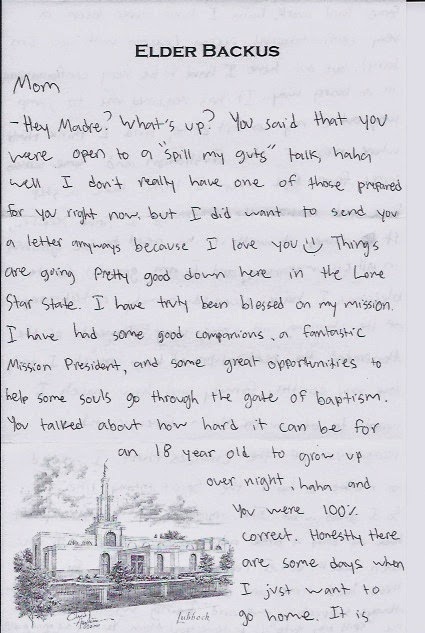 ELDER BACKUS
Mom
- Hey Madre? What's up? You said that you
were open to a "spill my guts" talk, haha
well I don't really have one of those prepared
for you right now, but I did want to send you
a letter anyways because I love you Things
are going pretty good down here in the Lone
Star State. I have truly been blessed on my mission.
I have had some good companions, a fantastic
Mission President, and some great opportunities to
help some souls go through the gate of baptism.
You talked about how hard it can be for
an 18 year old to grow up
over night, haha and
you were 100%
correct. Honestly there
are some days when
I just want to
go home. It is
Lubbock